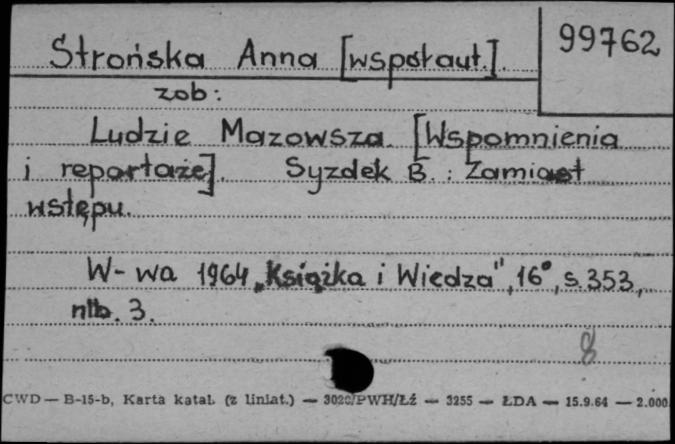 Strońska Anna [współaut.].
99762
zob:
Ludzie Mazowsza. [Wspomnienia
i reportaże]. Syzdek B.: Zamiast
wstępu.
W-wa 1964 „Książka i Wiedza", 16°, s. 353,
ntb. 3.
8
CWD — B-15-b, Karta katal. (z liniat.) — 3020/PWH/Łź — 3255 — ŁDA — 15.9.64 — 2.000